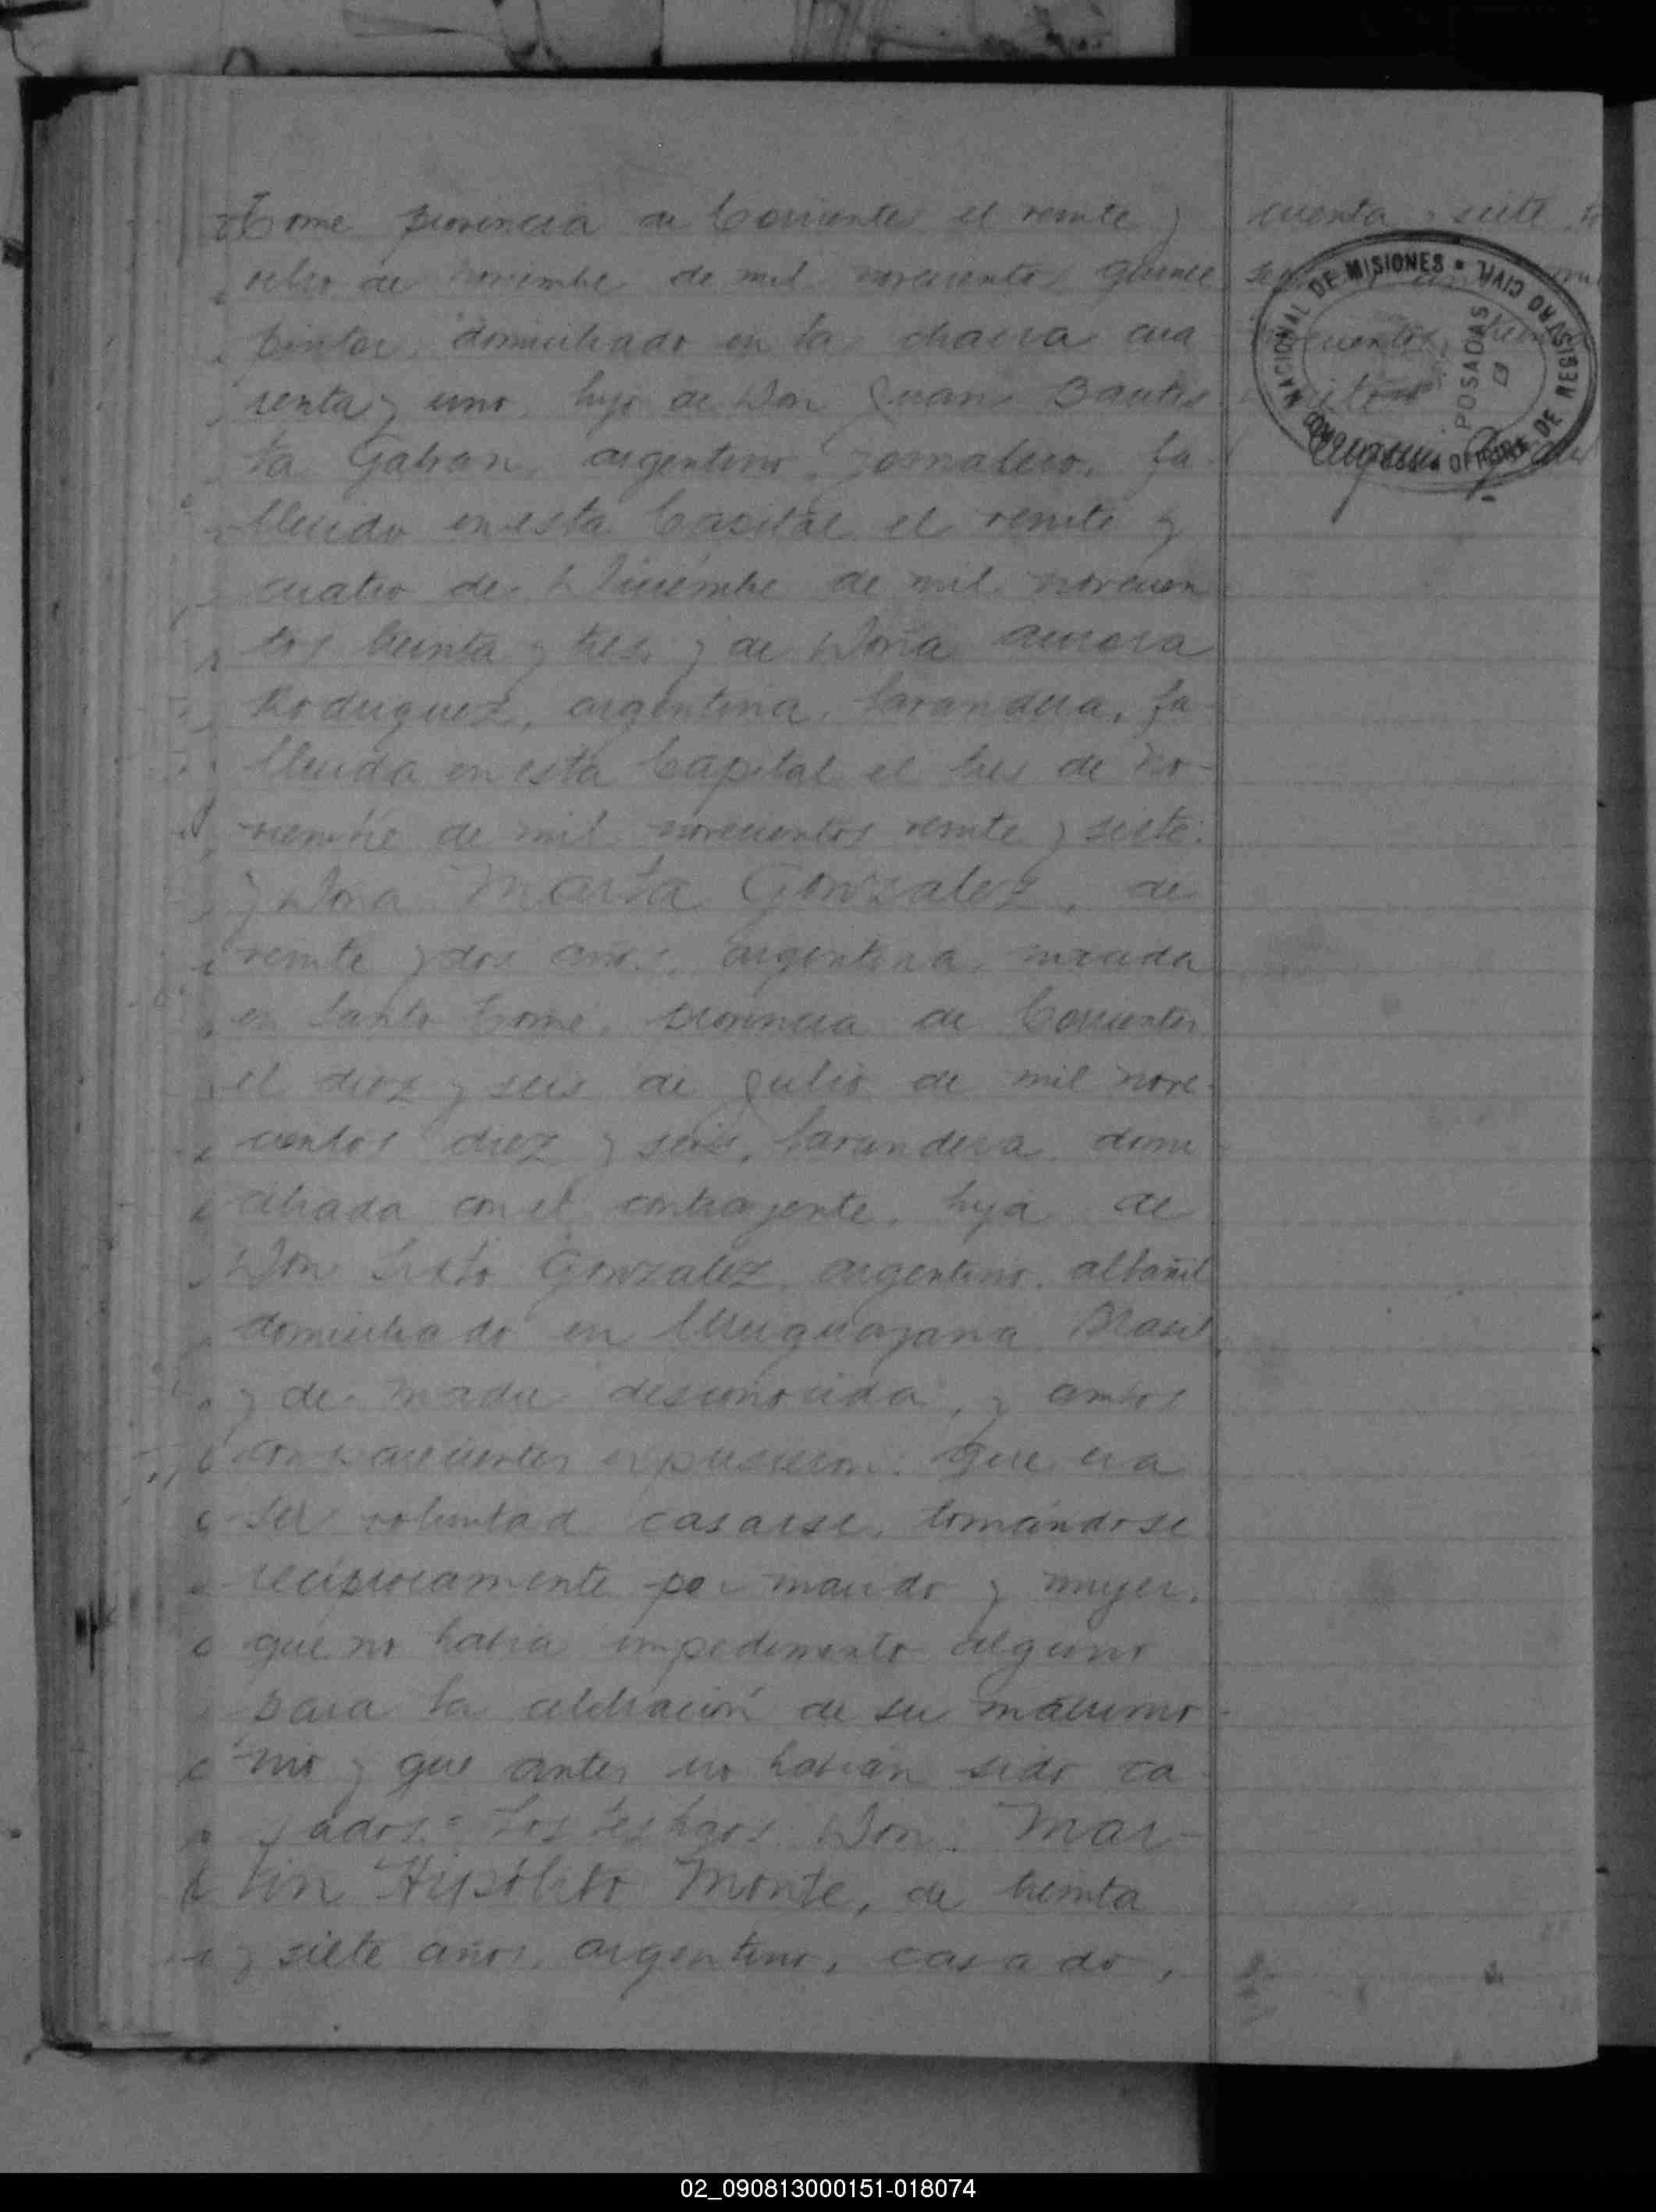 Tomé provincia de Corrientes el veinte y
ocho de noviembre de mil novecientos quince
pintor, domiciliado en la chacra cua
renta y uno, hijo de Don Juan Bautis
ta Gaban, argentino, jornalero, fa
llecido en esta Capital el veinte y
cuatro de Diciembre de mil novecien
tos treinta y tres, y de Doña Aurora
Rodriguez, argentina, lavandera, fa
llecida en esta Capital el tres de No-
viembre de mil novecientos veinte y siete:
y Doña Marta Gonzalez, de
veinte y dos años, argentina, nacida
en Santo Tomé, provincia de Corrientes
el diez y seis de Julio de mil nove-
cientos diez y seis, lavandera, domi
ciliada con el contrayente, hija de
Don Sixto Gonzalez, argentino, albañil
domiciliado en Uruguayana Brasil
y de madre desconocida, y ambos
comparecientes expusieron: Que era
su voluntad casarse, tomándose
reciprocamente por marido y mujer,
que no habia impedimento alguno
para la celebración de su matrimo-
nio y que antes no habian sido ca
sados = Los testigos Don Mar-
tin Hipólito Monte, de treinta
y siete años, argentino, casado,
cuenta y siete
NACIONAL DE MISIONES
OFICINA DE REGISTRO CIVIL
POSADAS
02_090813000151-018074